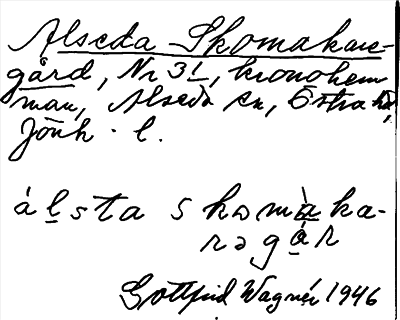 Alseda Skomakare-
gård, Nr 31, kronohem
man, Alseda sn, Östra hd,
Jönk. l.
álsta skomàka-
rəgáṛ
Gottfrid Wagnér 1946